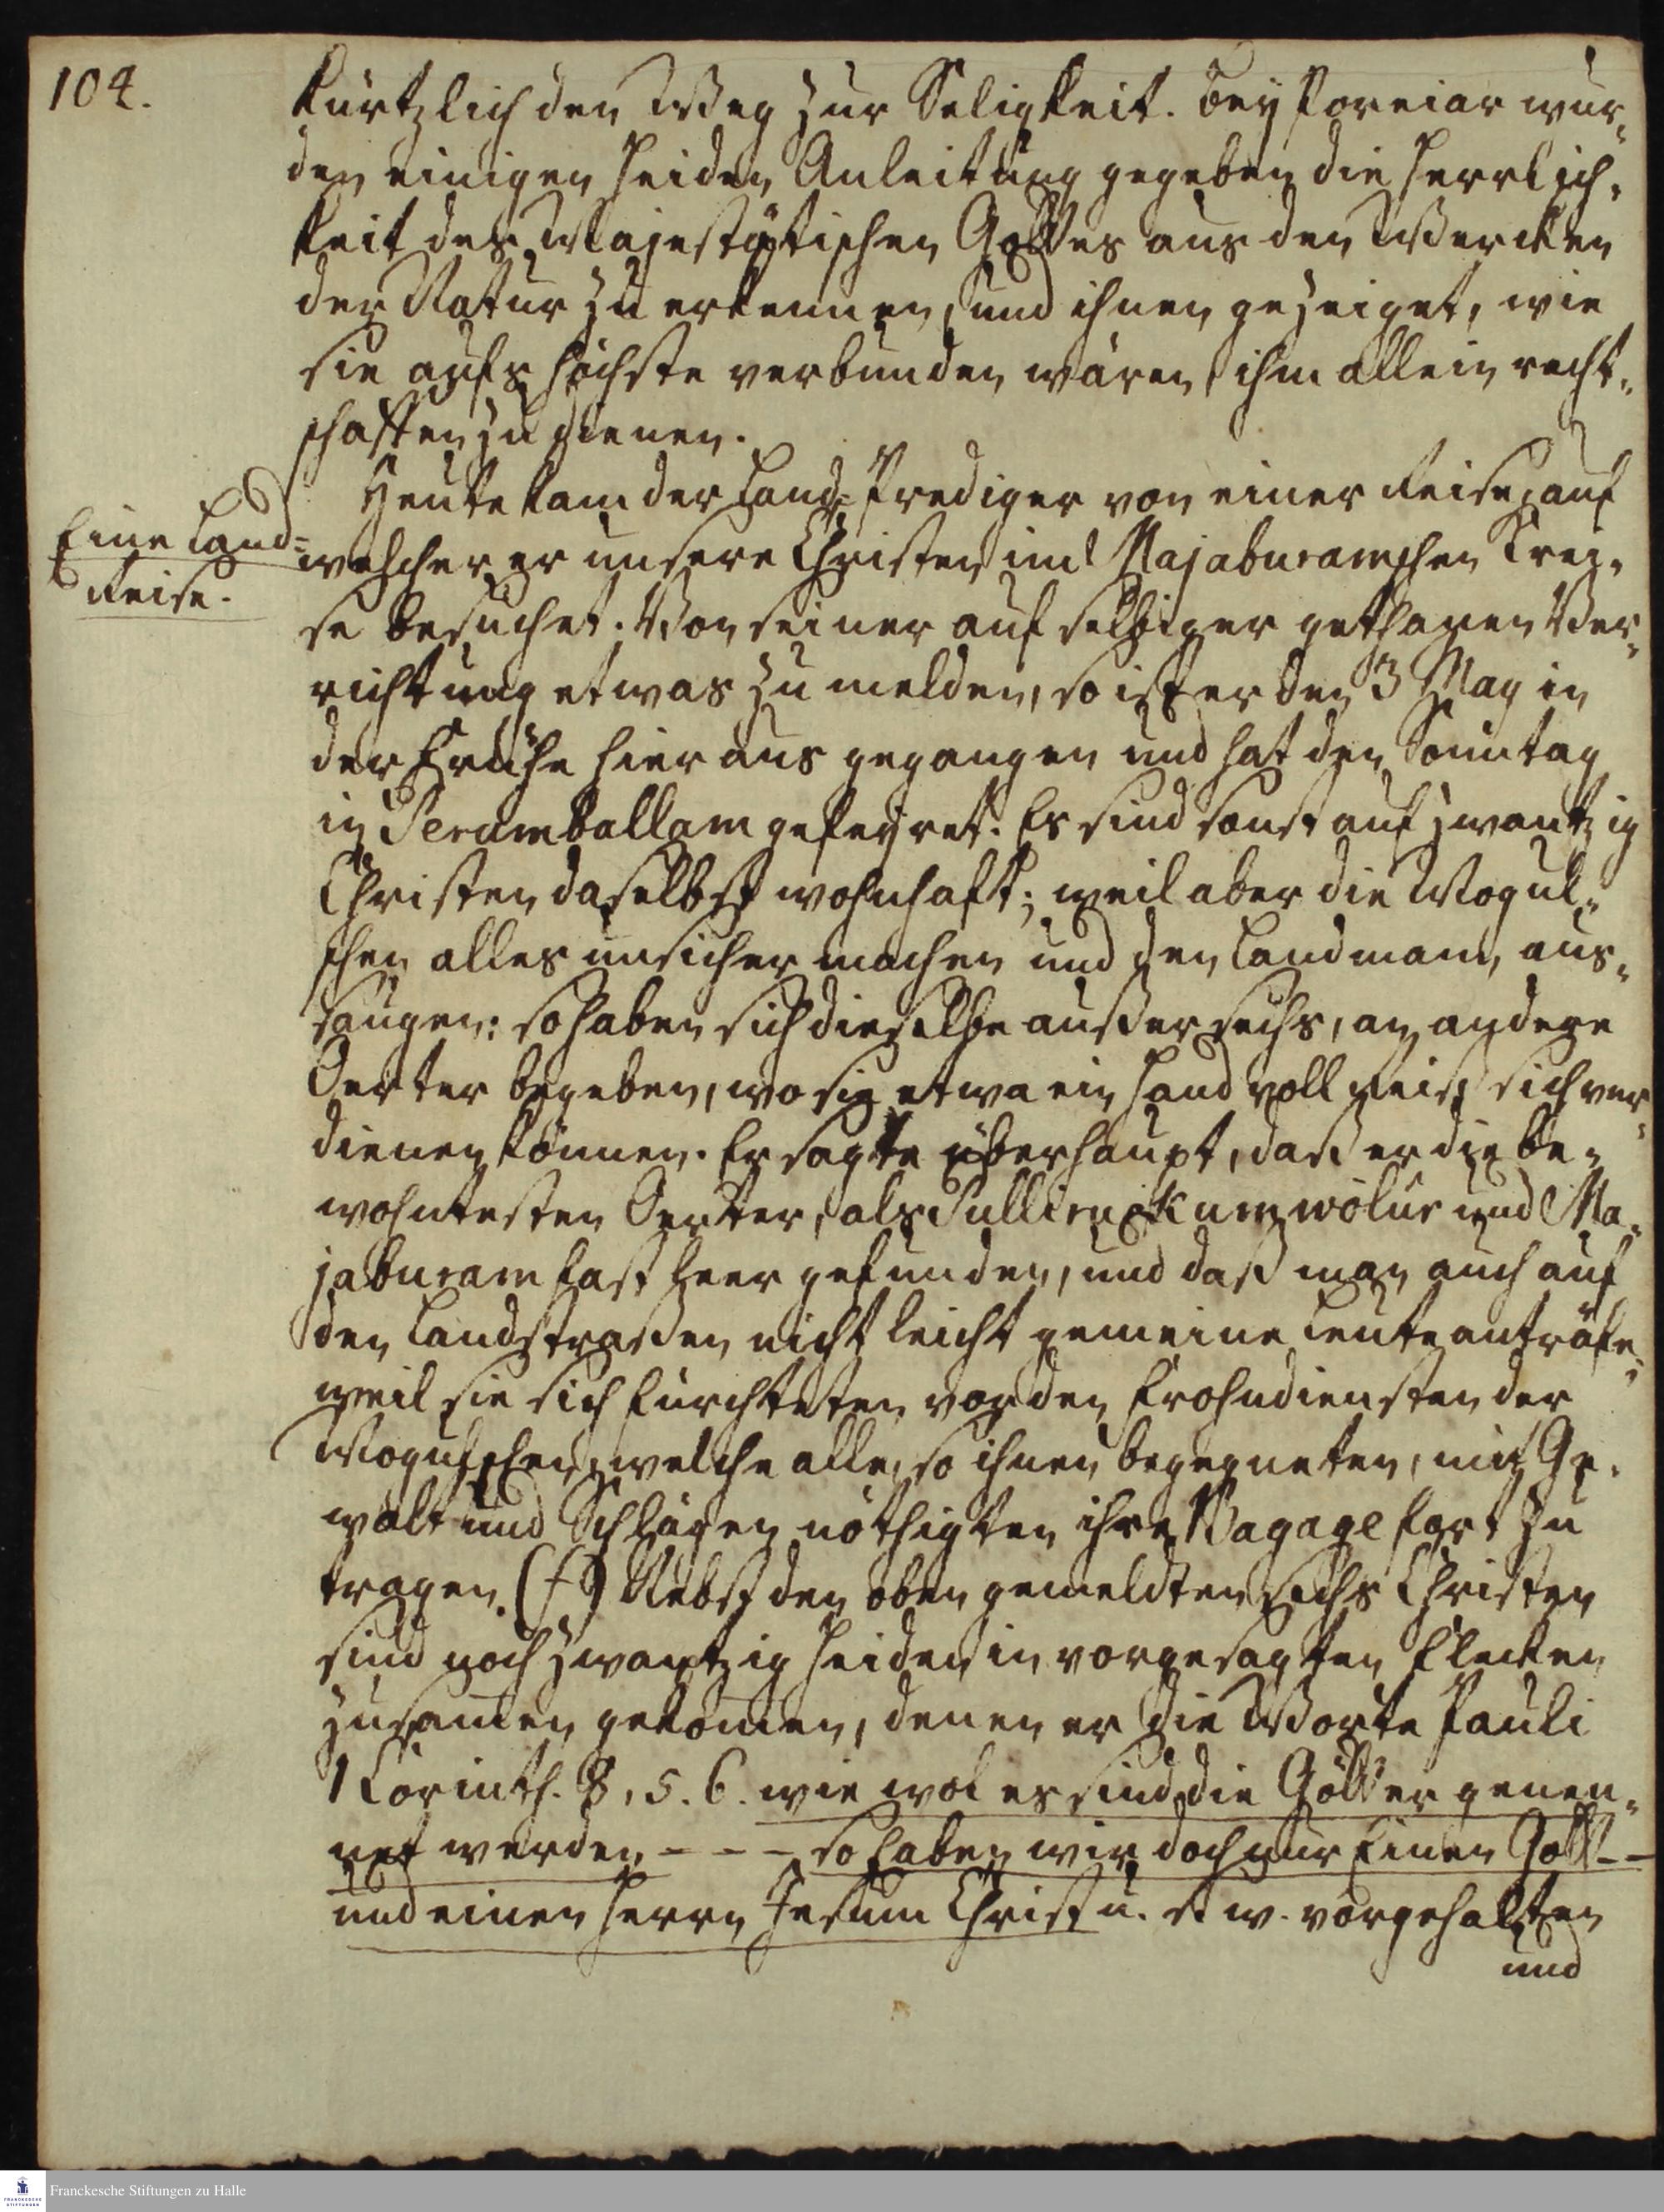 104.
kürtzlich den Weg zur Seligkeit. Bey Poreiar wur-
den einigen Heiden Anleitung gegeben die Herrlich-
keit des Majestätischen Gottes aus den Wercken
der Natur zu erkennen, und ihnen gezeiget, wie
sie aufs höchste verbunden wären, ihm allein recht-
schaffen zu dienen.
Heute kam der Land-Prediger von einer Reise, auf
Eine Land-
Reise.
welcher er unsere Christen im Majaburamschen Krei-
se besuchet. Von seiner auf selbiger gethanen Ver-
richtung etwas zu melden, so ist er den 3 May in
der Frühe hier aus gegangen und hat den Sonntag
in Perumballam gefeyret. Es sind sonst auf zwantzig
Christen daselbst wohnhaft; weil aber die Mogul-
schen alles unsicher machen und den Landmann, aus-
saugen: so haben sich dieselbe außer sechs, an andere
Oerter begeben, wo sie etwa ein Hand voll Reis sich ver-
dienen können. Er sagte überhaupt, daß er die be-
wohntesten Oerter, als Pullirucku wölur und Ma-
jaburam fast leer gefunden, und daß man auch auf
den Landstraßen nicht leicht gemeine Leute anträfe,
weil sie sich fürchteten vor den Frohndiensten der
Mogulschen, welche alle, so ihnen begegneten, mit Ge-
walt und Schlägen nöthigten ihre Bagage fort zu
tragen. (f) Nebst den oben gemeldten sechs Christen
sind noch zwantzig Heiden in vorgesagten Flecken
zusamen gekomen, denen er die Worte Pauli
1 Corinth. 8, 5. 6. wie wol es sind die Götter genen-
net werden - - - so haben wir doch nur Einen Gott - -
und einen Herrn Jesum Christ u. s. w. vorgehalten
und
Franckesche Stiftungen zu Halle
FRANCKESCHE STIFTUNGEN